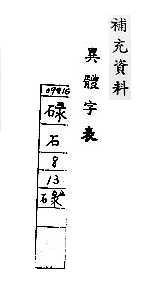 補充資料
異體字表
09816
碌
石
8
13